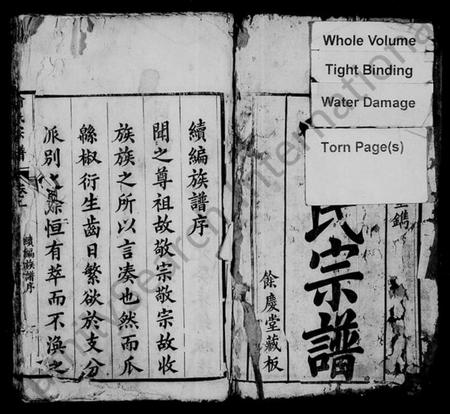 Whole Volume
Tight Binding
Water Damage
Torn Page(s)
氏宗譜
餘慶堂藏板
鐫
續編族譜序
聞之尊祖故敬宗敬宗故收
族族之所以言湊也然而瓜
緜椒衍生齒日繁欲於支分
派別之際恒有萃而不渙之
續編族譜序
氏宗譜